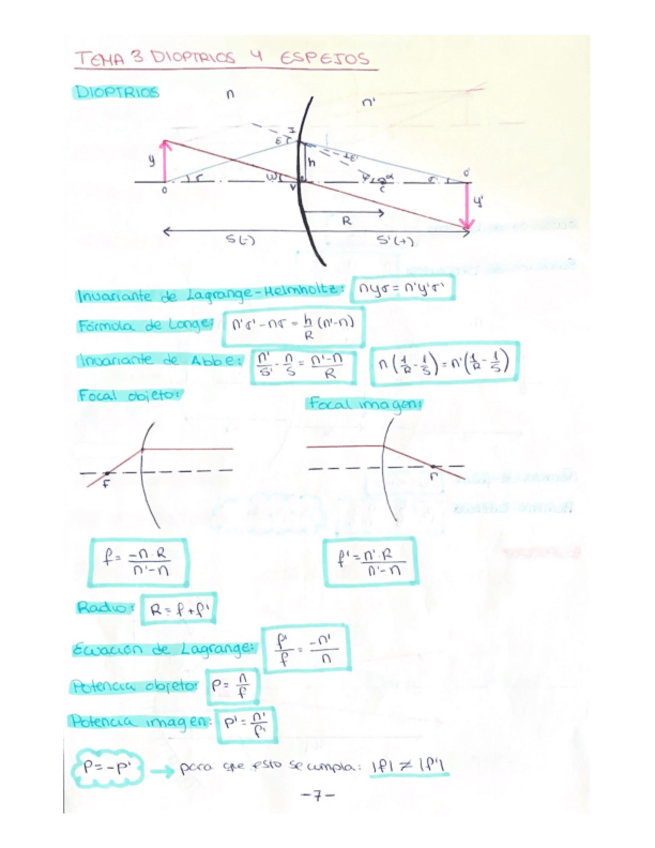 TEMA 3 DIOPTRIOS Y ESPEJOS
DIOPTRIOS
n n'
I
y h
O σ ω V φ α C σ' O'
y'
R
S(-) S'(+)
Invariante de Lagrange-Helmholtz: nyσ = n'y'σ'
Fórmula de Lange: n'σ' - nσ = h/R (n'-n)
Invariante de Abbe: n'/S' - n/S = n'-n/R n(1/R - 1/S) = n'(1/R - 1/S)
Focal objeto: Focal imagen:
F
f = -n·R/n'-n f' = n'·R/n'-n
Radio: R = f + f'
Ecuación de Lagrange: f'/f = -n'/n
Potencia objeto: P = n/f
Potencia imagen: P' = n'/f'
P = -P' → para que esto se cumpla: |f| ≠ |f'|
-7-